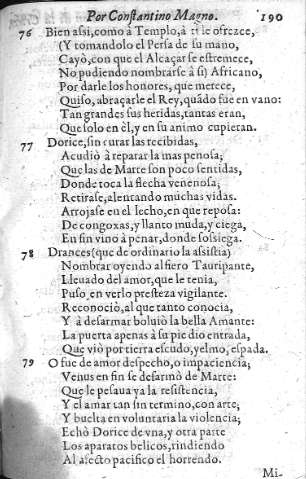 Por Constantino Magno. 190
76 Bien assi, como à Templo, à ti le ofrezce,
(Y tomandolo el Persa de su mano,
Cayò, con que el Alcaçar se estremece,
No pudiendo nombrarse à si) Africano,
Por darle los honores, que merece,
Quiso, abraçarle el Rey, quãdo fue en vano:
Tan grandes sus heridas, tantas eran,
Que solo en èl, y en su animo cupieran.
77 Dorice, sin curar las recibidas,
Acudiò à reparar la mas penosa;
Que las de Marte son poco sentidas,
Donde toca la flecha venenosa;
Retirase, alentando muchas vidas.
Arrojase en el lecho, en que reposa:
De congoxas, y llanto muda, y ciega,
En fin vino à penar, donde sossiega.
78 Drances (que de ordinario la assistia)
Nombrar oyendo al fiero Tauripante,
Lleuado del amor, que le tenia,
Puso, en verlo presteza vigilante.
Reconociò, al que tanto conocia,
Y à desarmar boluiò la bella Amante:
La puerta apenas à su pie dio entrada,
Que viò por tierra escudo, yelmo, espada.
79 O fue de amor despecho, o impaciencia;
Venus en fin se desarmò de Marte:
Que le pesaua ya la resistencia,
Y el amar tan sin termino, con arte;
Y buelta en voluntaria la violencia;
Echò Dorice de vna, y otra parte
Los aparatos belicos, rindiendo
Al afecto pacifico el horrendo.
Mi-